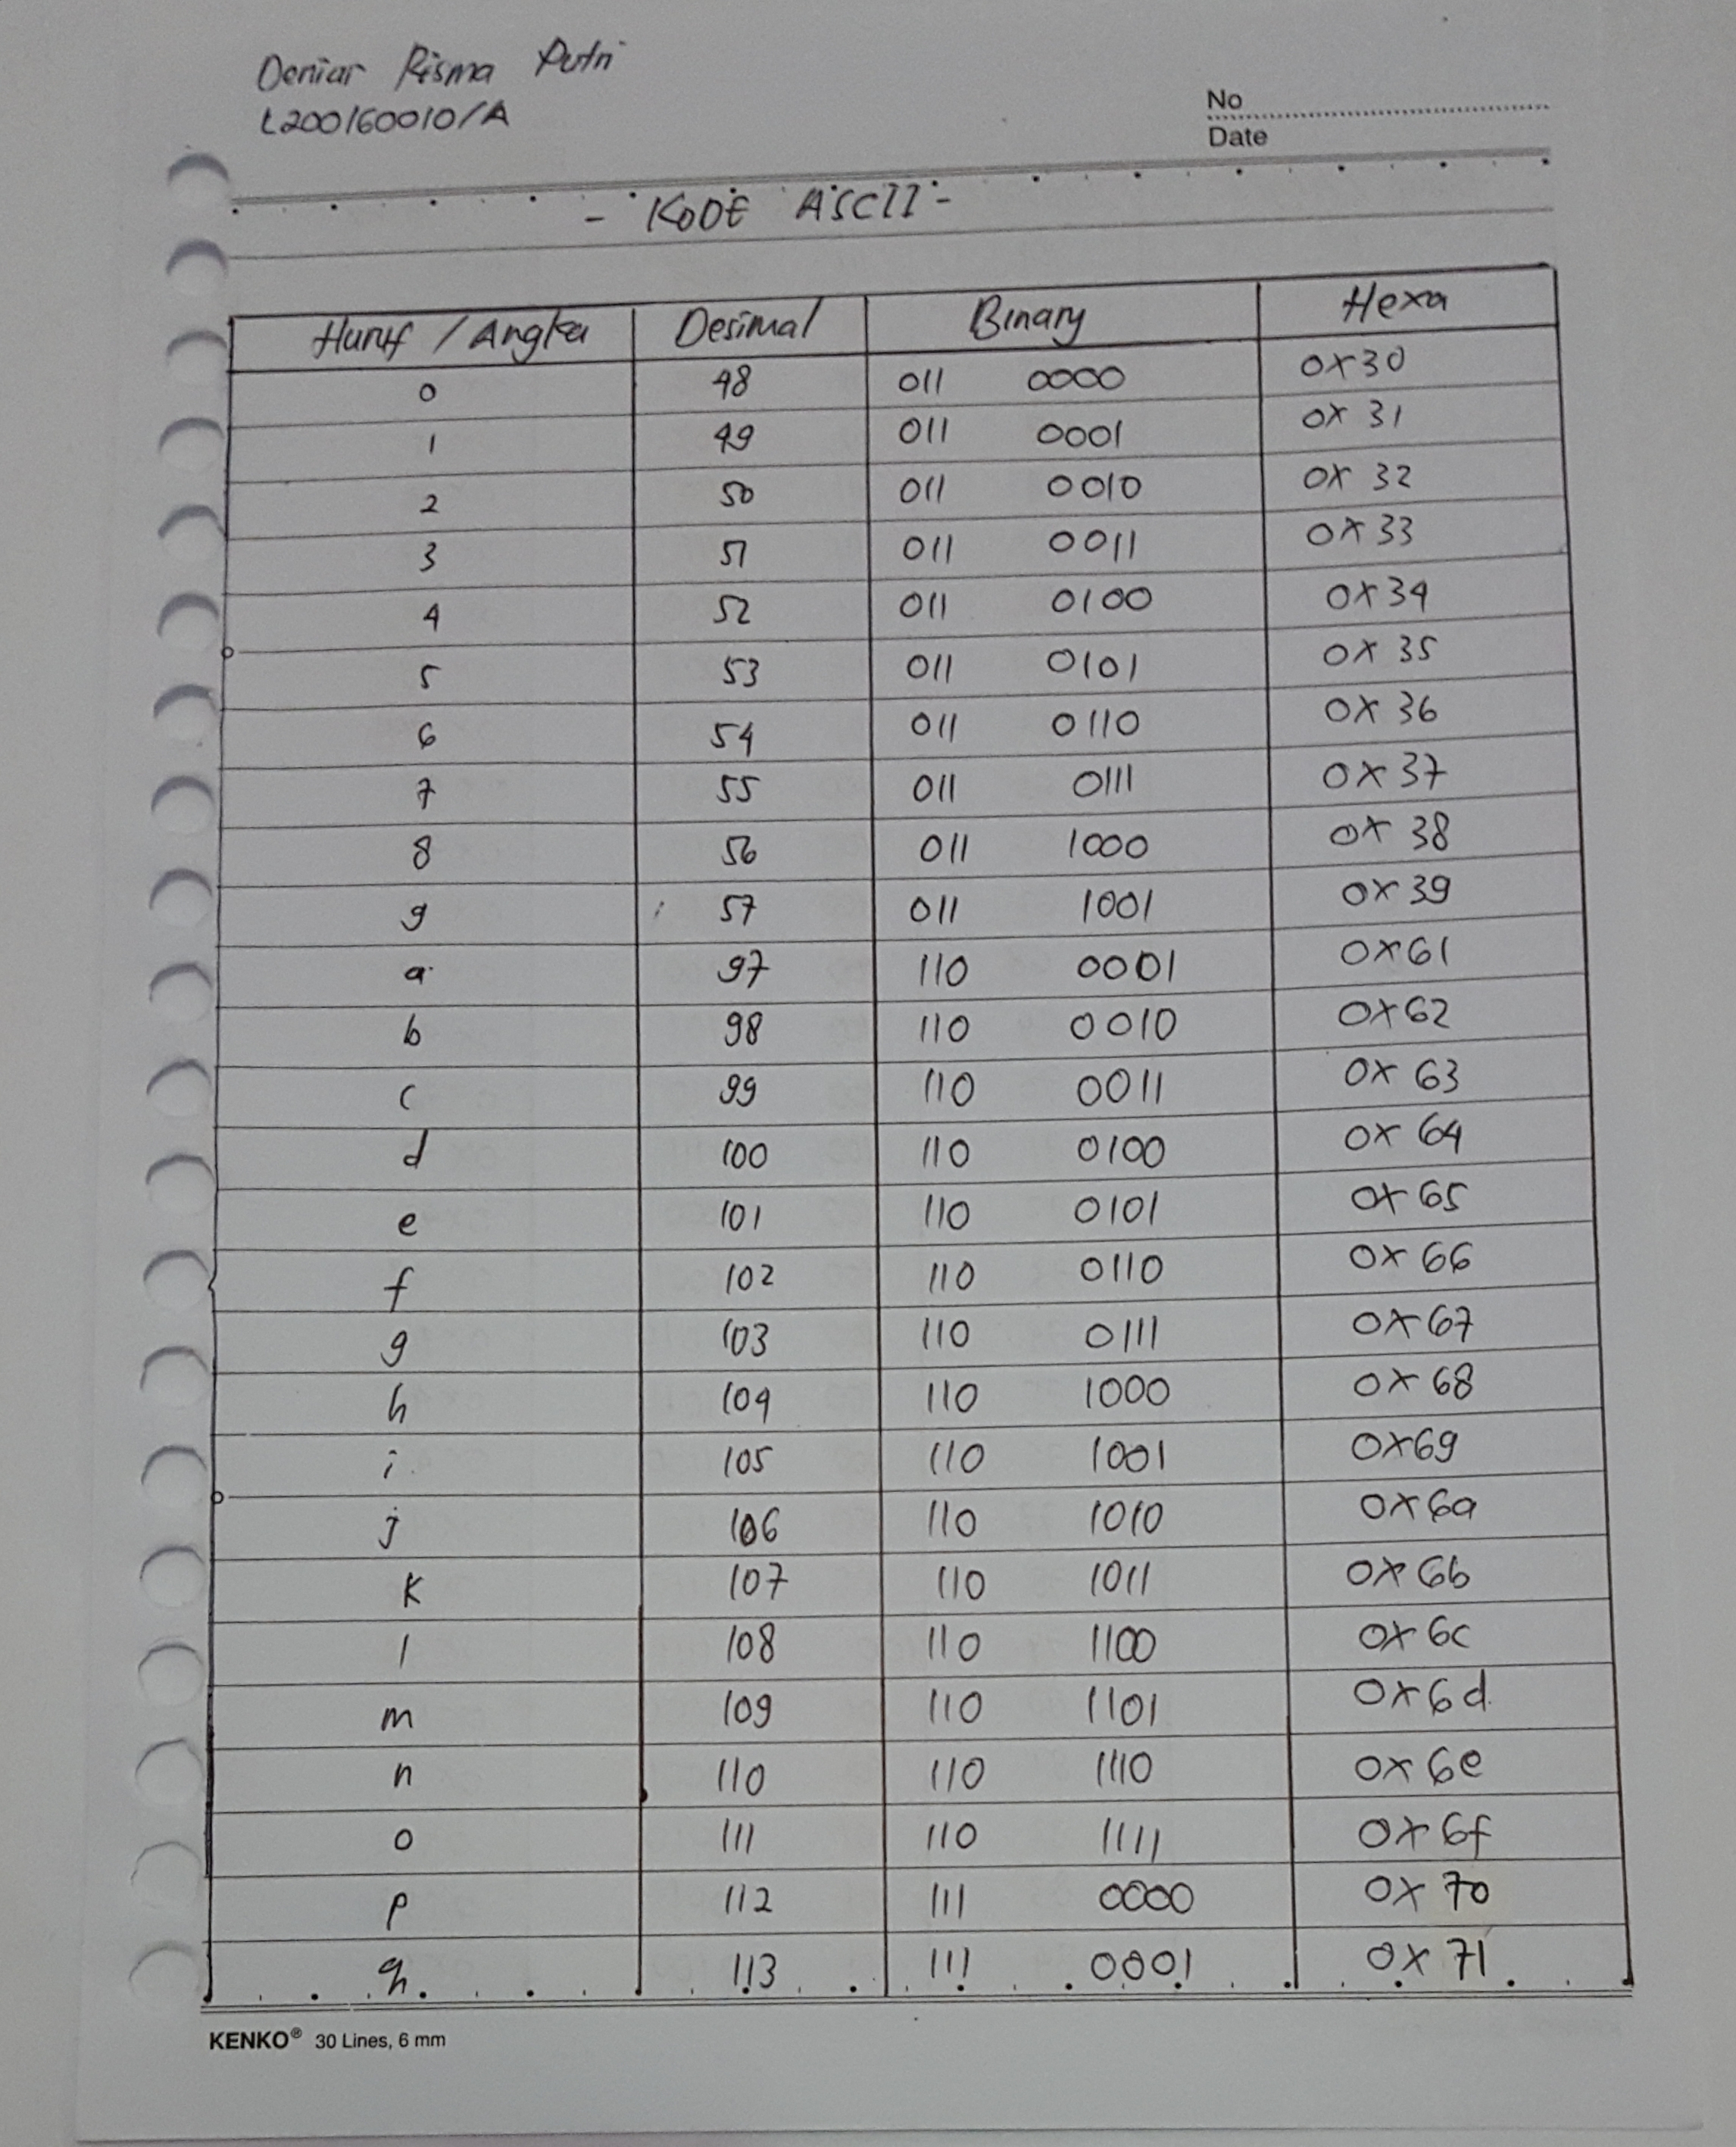 Deniar Risma Putri
L200160010/A
No
Date
- KODE ASCII -
Huruf / Angka Desimal Binary Hexa
0 48 011 0000 0x30
1 49 011 0001 0x 31
2 50 011 0010 0x 32
3 51 011 0011 0x 33
4 52 011 0100 0x34
5 53 011 0101 0x 35
6 54 011 0110 0x 36
7 55 011 0111 0x 37
8 56 011 1000 0x 38
9 57 011 1001 0x 39
a 97 110 0001 0x61
b 98 110 0010 0x62
c 99 110 0011 0x 63
d 100 110 0100 0x 64
e 101 110 0101 0x 65
f 102 110 0110 0x 66
g 103 110 0111 0x 67
h 104 110 1000 0x 68
i 105 110 1001 0x69
j 106 110 1010 0x 6a
k 107 110 1011 0x 6b
l 108 110 1100 0x 6c
m 109 110 1101 0x6d
n 110 110 1110 0x 6e
o 111 110 1111 0x 6f
p 112 111 0000 0x 70
q 113 111 0001 0x 71
KENKO® 30 Lines, 6 mm